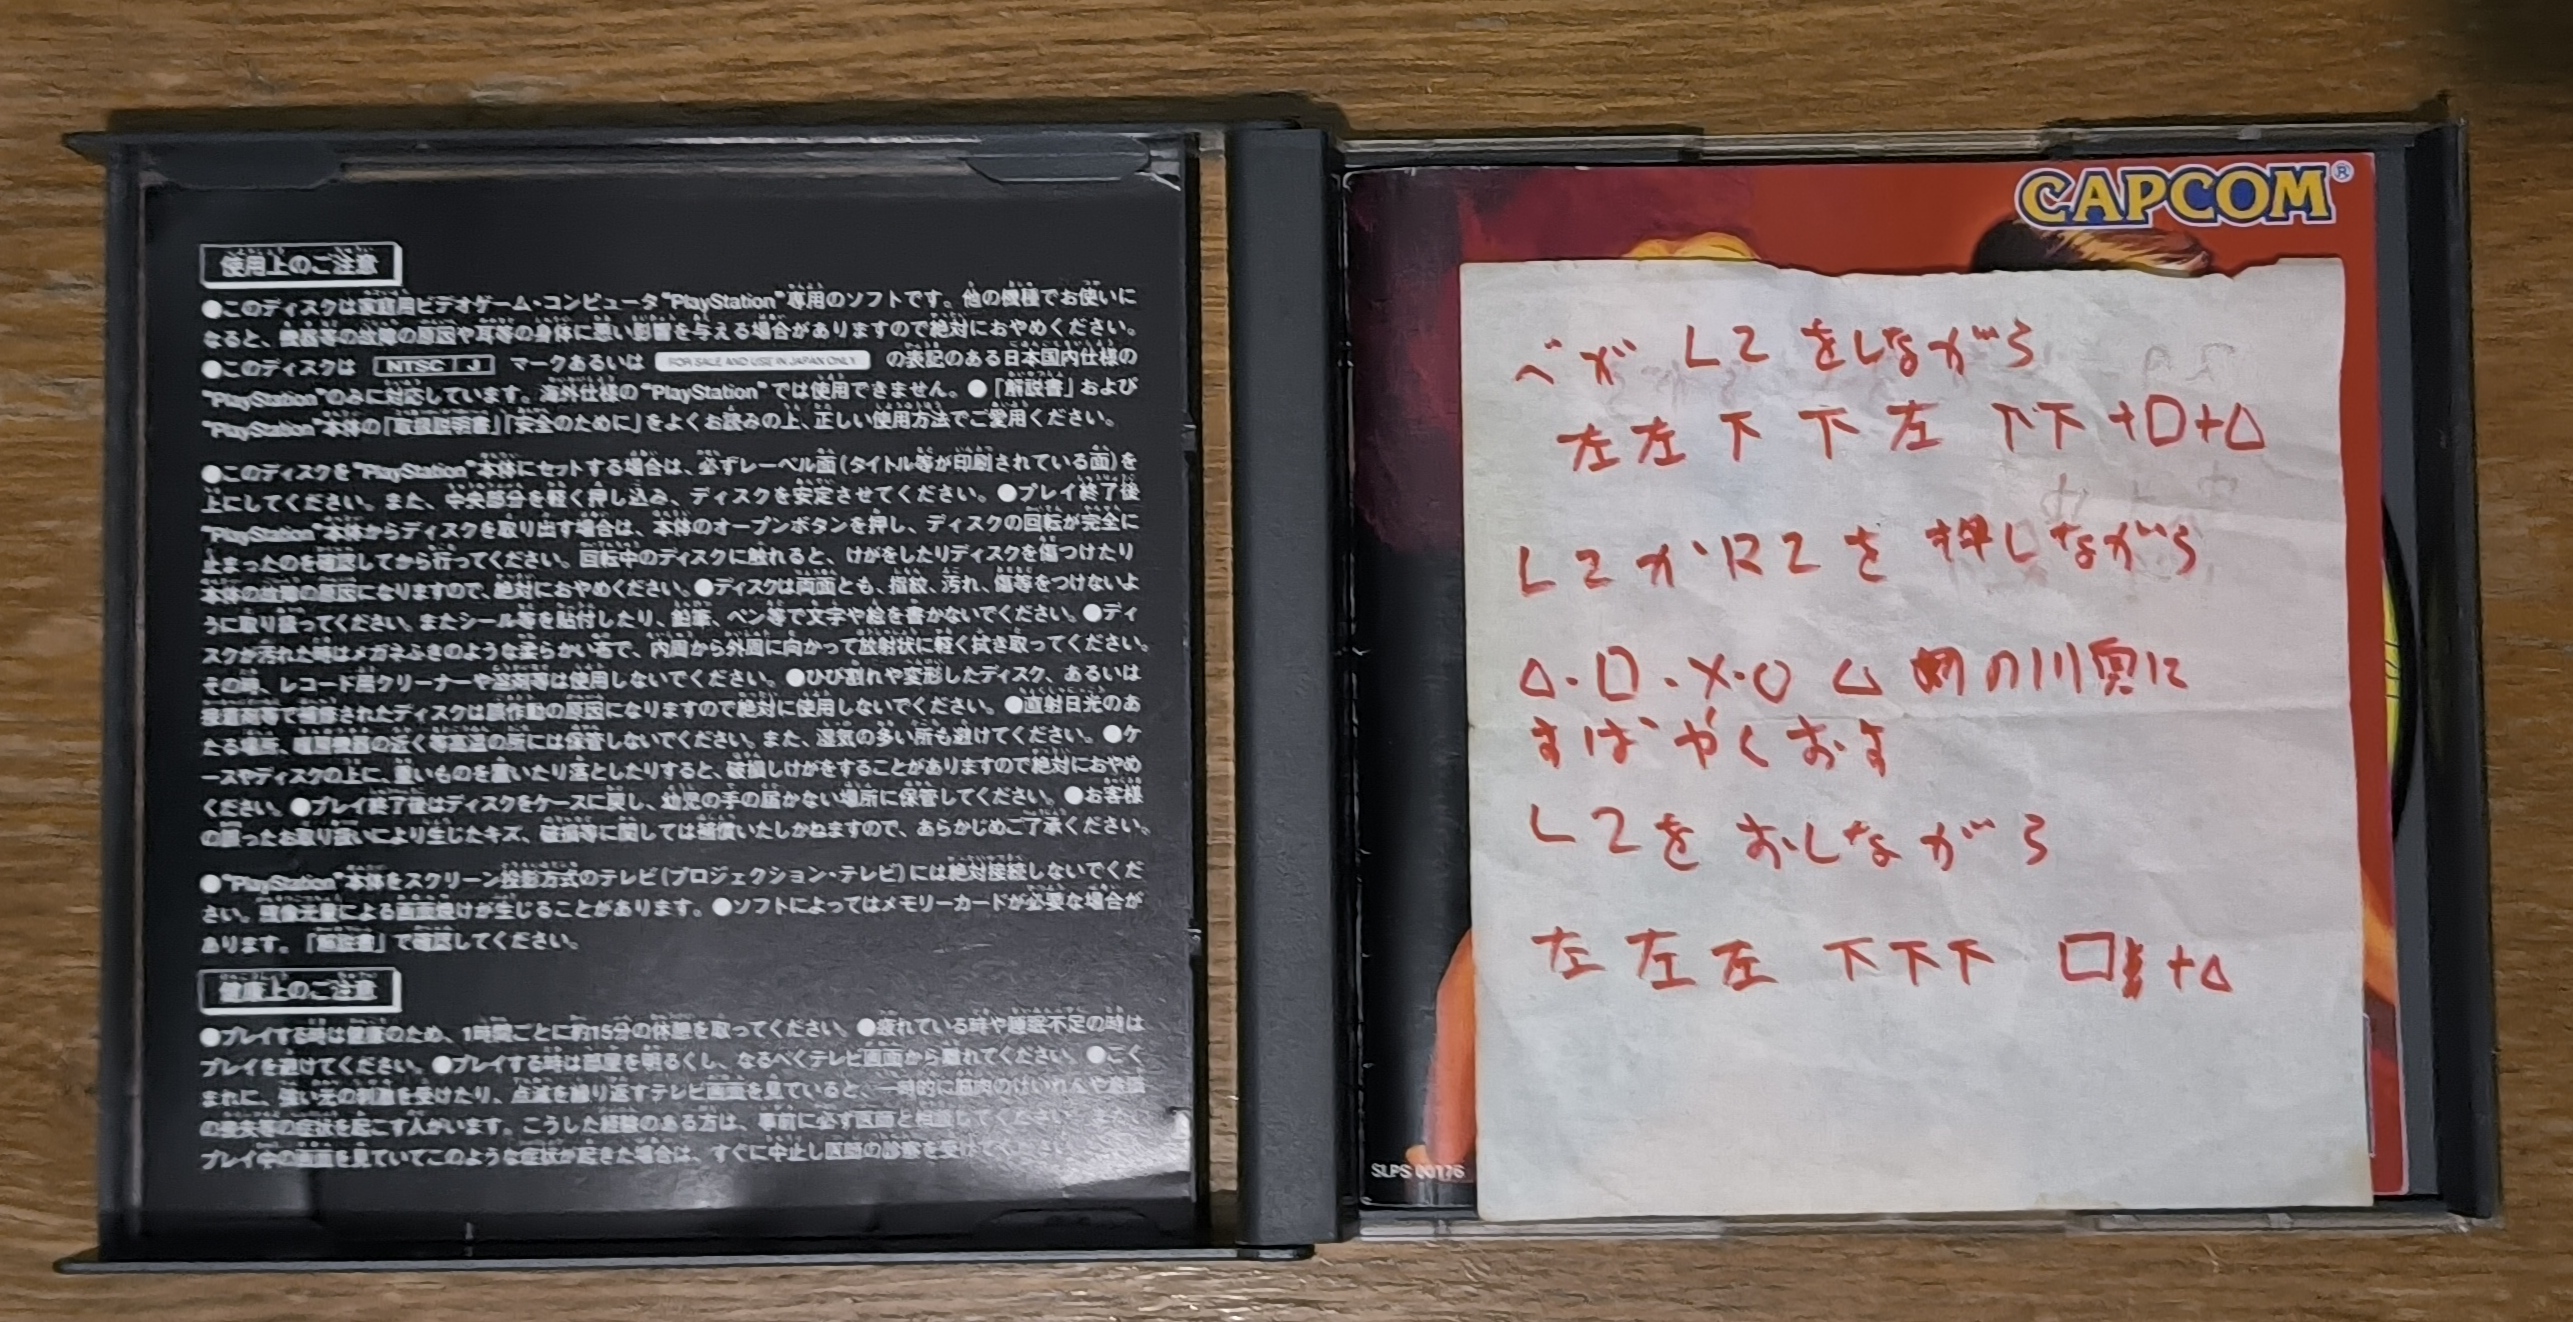 使用上のご注意
●このディスクは家庭用ビデオゲーム・コンピュータ"PlayStation"専用のソフトです。他の機種でお使いに
なると、機器等の故障の原因や耳等の身体に悪い影響を与える場合がありますので絶対におやめください。
●このディスクは NTSC J マークあるいは FOR SALE AND USE IN JAPAN ONLY の表記のある日本国内仕様の
"PlayStation"のみに対応しています。海外仕様の"PlayStation"では使用できません。●「解説書」および
"PlayStation"本体の「取扱説明書」「安全のために」をよくお読みの上、正しい使用方法でご愛用ください。
●このディスクを"PlayStation"本体にセットする場合は、必ずレーベル面(タイトル等が印刷されている面)を
上にしてください。また、中央部分を軽く押し込み、ディスクを安定させてください。●プレイ終了後
"PlayStation"本体からディスクを取り出す場合は、本体のオープンボタンを押し、ディスクの回転が完全に
止まったのを確認してから行ってください。回転中のディスクに触れると、けがをしたりディスクを傷つけたり
本体の故障の原因になりますので、絶対におやめください。●ディスクは両面とも、指紋、汚れ、傷等をつけないよ
うに取り扱ってください。またシール等を貼付したり、鉛筆、ペン等で文字や絵を書かないでください。●ディ
スクが汚れた時はメガネふきのような柔らかい布で、内周から外周に向かって放射状に軽く拭き取ってください。
その時、レコード用クリーナーや溶剤等は使用しないでください。●ひび割れや変形したディスク、あるいは
接着剤等で補修されたディスクは誤作動の原因になりますので絶対に使用しないでください。●直射日光のあ
たる場所、暖房機器の近く等高温の所には保管しないでください。また、湿気の多い所も避けてください。●ケ
ースやディスクの上に、重いものを置いたり落としたりすると、破損しけがをすることがありますので絶対におやめ
ください。●プレイ終了後はディスクをケースに戻し、幼児の手の届かない場所に保管してください。●お客様
の誤ったお取り扱いにより生じたキズ、破損等に関しては補償いたしかねますので、あらかじめご了承ください。
●"PlayStation"本体をスクリーン投影方式のテレビ(プロジェクション・テレビ)には絶対接続しないでくだ
さい。残像光量による画面焼けが生じることがあります。●ソフトによってはメモリーカードが必要な場合が
あります。「解説書」で確認してください。
健康上のご注意
●プレイする時は健康のため、1時間ごとに約15分の休憩を取ってください。●疲れている時や睡眠不足の時は
プレイを避けてください。●プレイする時は部屋を明るくし、なるべくテレビ画面から離れてください。●ごく
まれに、強い光の刺激を受けたり、点滅を繰り返すテレビ画面を見ていると、一時的に筋肉のけいれんや意識
の喪失等の症状を起こす人がいます。こうした経験のある方は、事前に必ず医師と相談してください。また、
プレイ中の画面を見ていてこのような症状が起きた場合は、すぐに中止し医師の診察を受けてください。
CAPCOM®
ベガ L2 をしながら
左左下下左下下+□+△
L2かR2を押しながら
△・□・×・○ △ の川頁に
すばやくおす
L2をおしながら
左左左下下下 □+△
SLPS 00176